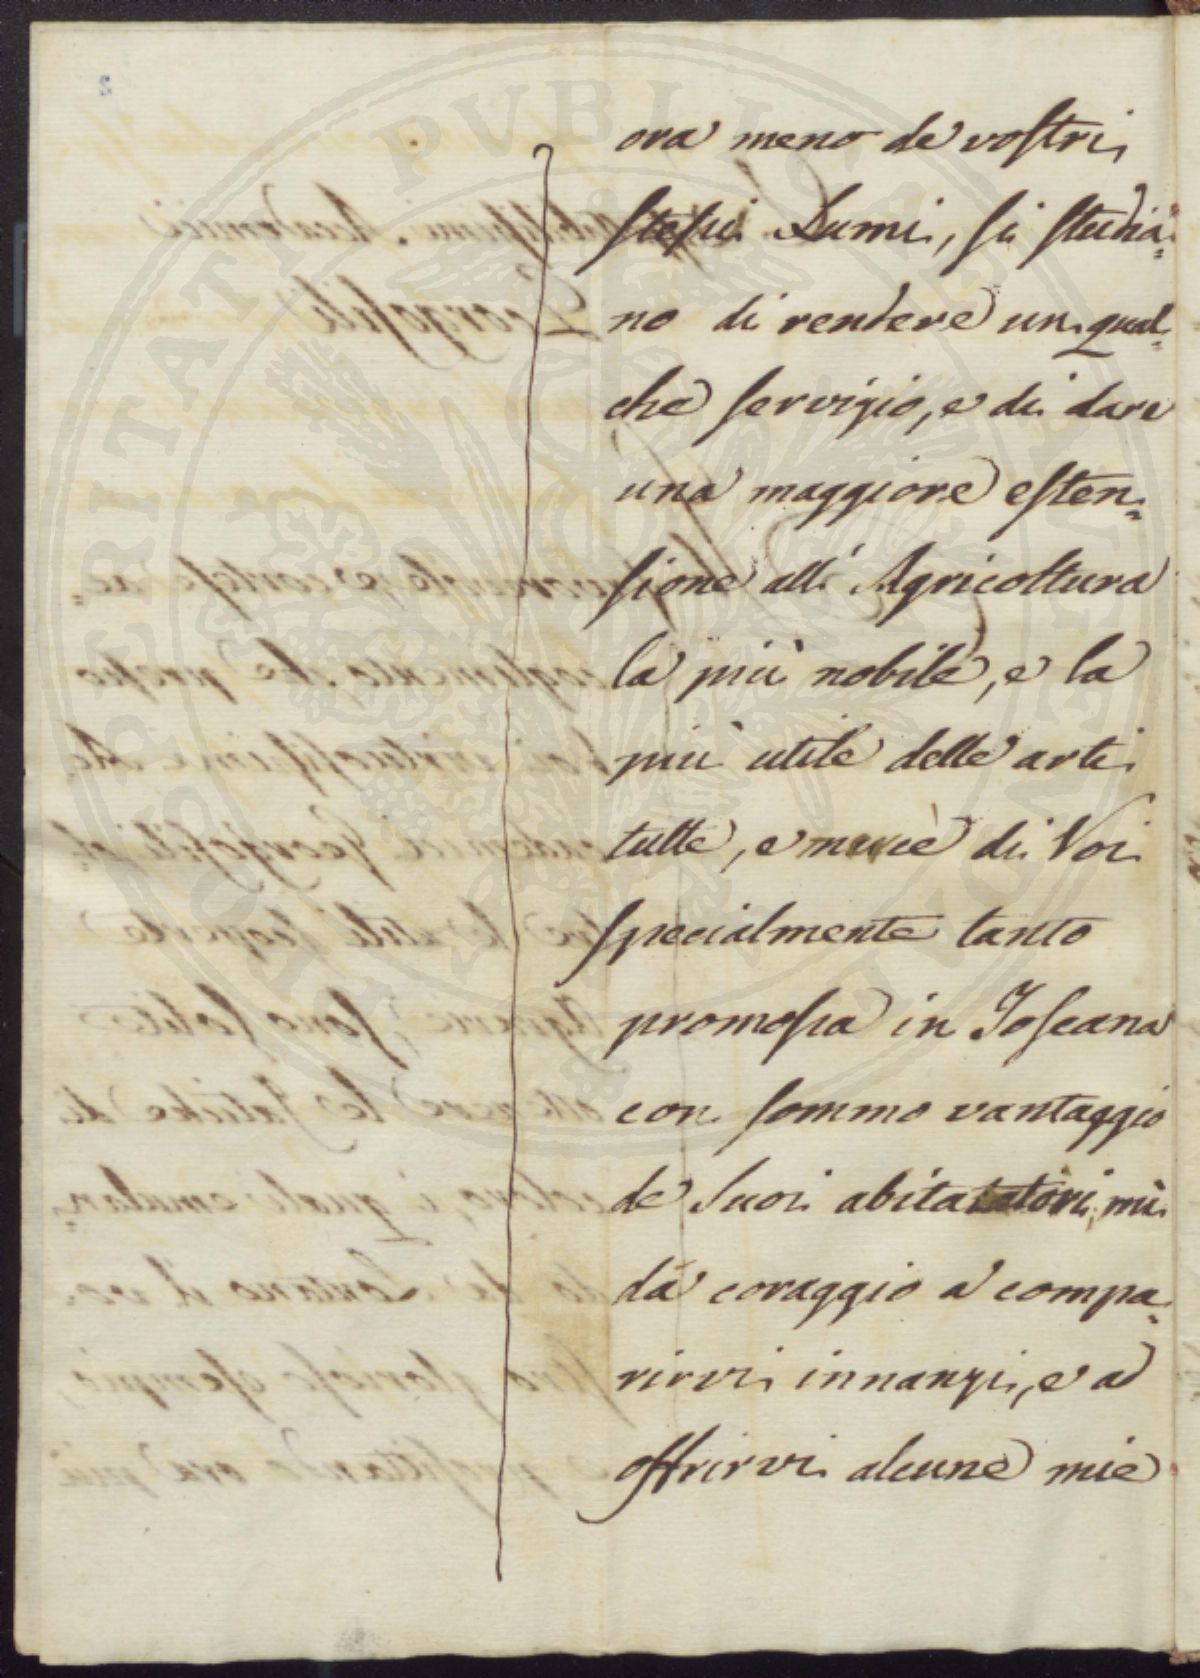 ora meno de vostri
stessi Lumi, si studia=
no di rendere un qual=
che servizio, e di dare
una maggiore esten=
sione all' Agricoltura
la più nobile, e la
più utile delle arti
tutte, e mercè di Voi
specialmente tanto
promossa in Toscana
con sommo vantaggio
de Suoi abitatatori, mi
dà coraggio a compa=
rirvi innanzi, e ad
offrirvi alcune mie